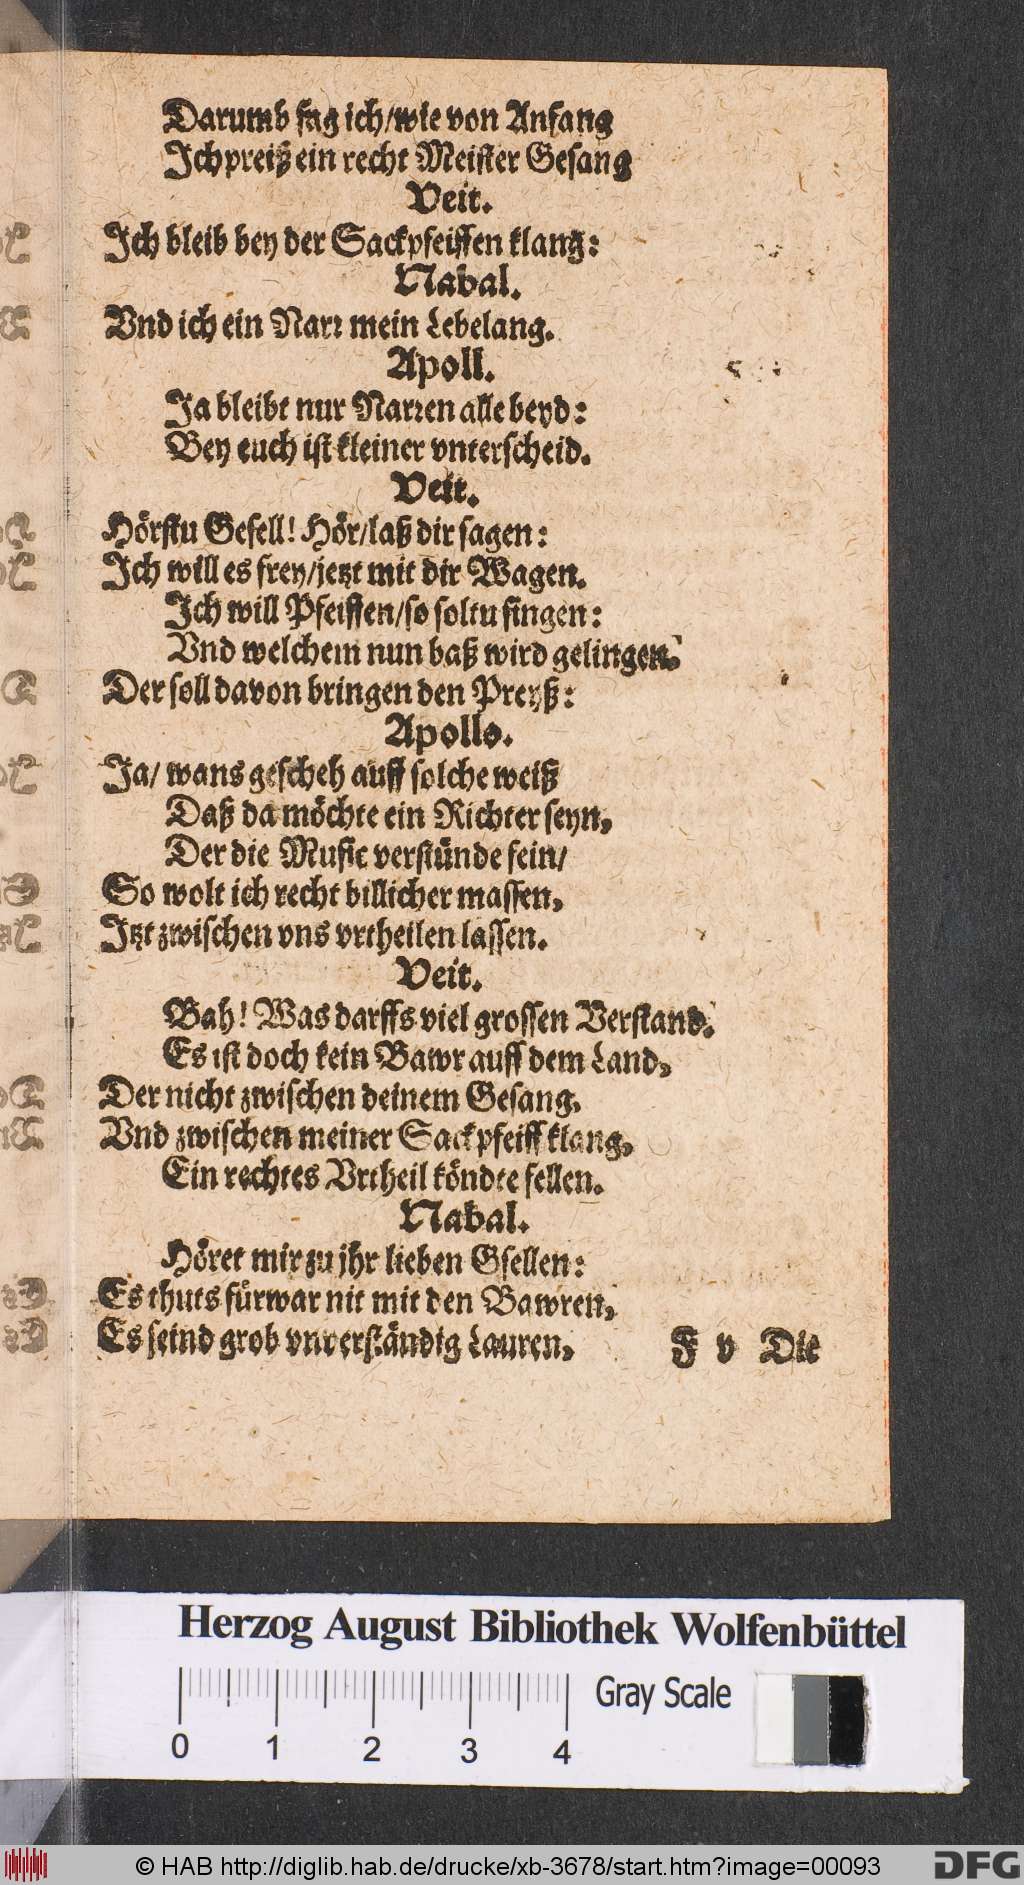 Darumb sag ich/wie von Anfang
Ich preiß ein recht Meister Gesang
Veit.
Ich bleib bey der Sackpfeiffen klang:
Nabal.
Vnd ich ein Narr mein Lebelang.
Apoll.
Ja bleibt nur Narren alle beyd:
Bey euch ist kleiner vnterscheid.
Veit.
Hörstu Gesell! Hör/laß dir sagen:
Ich will es frey/jetzt mit dir Wagen.
Ich will Pfeiffen/so soltu singen:
Vnd welchem nun baß wird gelingen.
Der soll davon bringen den Preyß:
Apollo.
Ja/ wans gescheh auff solche weiß
Daß da möchte ein Richter seyn,
Der die Music verstünde fein/
So wolt ich recht billicher massen,
Itzt zwischen vns vrtheilen lassen.
Veit.
Bah! Was darffs viel grossen Verstand.
Es ist doch kein Bawr auff dem Land,
Der nicht zwischen deinem Gesang,
Vnd zwischen meiner Sackpfeiff klang,
Ein rechtes Vrtheil köndte fellen.
Nabal.
Höret mir zu jhr lieben Gsellen:
Es thuts fürwar nit mit den Bawren,
Es seind grob vnverständig Lauren,
F v Die
Herzog August Bibliothek Wolfenbüttel
0 1 2 3 4 Gray Scale
© HAB http://diglib.hab.de/drucke/xb-3678/start.htm?image=00093
DFG